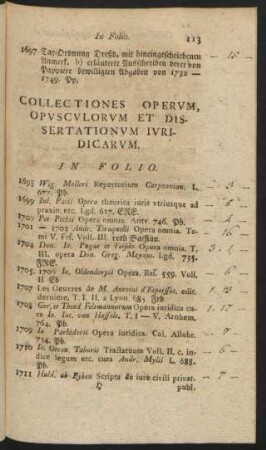 In Folio. 113
1697 Tax-Ordnung Dresd. mit hineingeschriebenen - 15 -
Anmerk. b) erläuterte Ausschreiben derer von
Papyiere bewilligten Abgaben von 1732 —
1749. Pp.
COLLECTIONES OPERVM,
OPVSCVLORVM ET DIS-
SERTATIONVM IVRI-
DICARVM.
IN FOLIO.
1698 Wig. Molleri Repertorium Carpzovian. L. - 3 -
677. Pb.
1699 Iul. Pacii Opera theorica iuris vtriusque ad - 4 -
praxin etc. Lgd. 617. ERE.
1700 Pu. Peckii Opera omnia. Antw. 746. Pb. - 4 -
1701 — 1703 Andr. Tiraquelli Opera omnia. To-
mi V. Frf. Voll. III. roth Saffian.
1704 Don. Io. Pugae et Feijoo Opera omnia. T. - 3 -
III. opera Don. Greg. Mayans. Lgd. 735.
FRE.
1705. 1706 Io. Oldendorpii Opera. Bas. 559. Voll.
II Eb
1707 Les Oeuvres de M. Antoine d'Espeisses. edit.
derniere. T. I. II. à Lyon. 685 Frb
1708 Ger. et Theod Feltmannorum Opera iuridica cu-
ra Io. Iac. van Hasselt. T. I — V. Arnhem.
764. Pb.
1709 Io Parladorii Opera iuridica. Col. Allobr.
734. Pb.
1710 Io. Otton. Taboris Tractatuum Voll. II. c. in- - 6 -
dice legum etc. cura Andr. Mylii L. 688.
Pb.
1711 Huld. ab Eyben Scripta de iure civili privat. - 7 -
H publ.